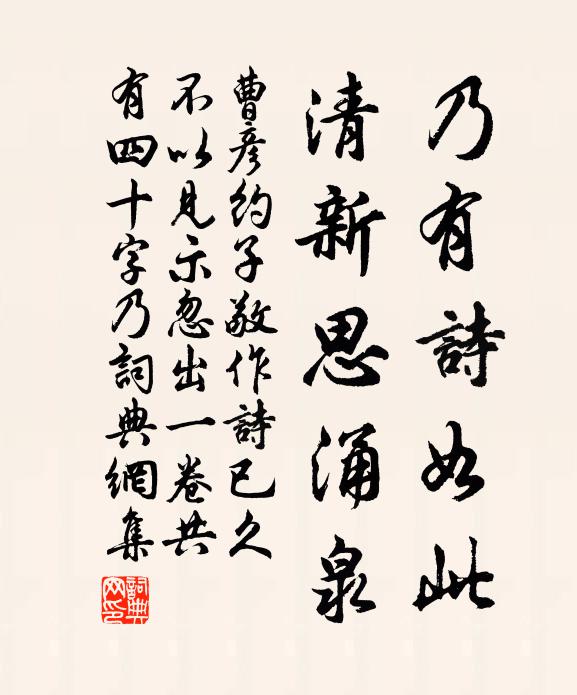 乃有詩如此
清新思涌泉
曹彦約子敬作詩已久
不以見示忽出一卷共
有四十字乃詞典網集
詞典
网印